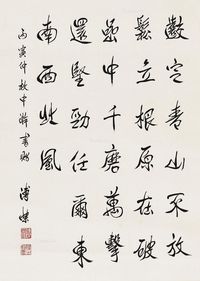 齩定青山不放
鬆立根原在破
嵒中千磨萬擊
還堅勁任爾東
南西北風
丙寅仲秋中澣書
溥傑